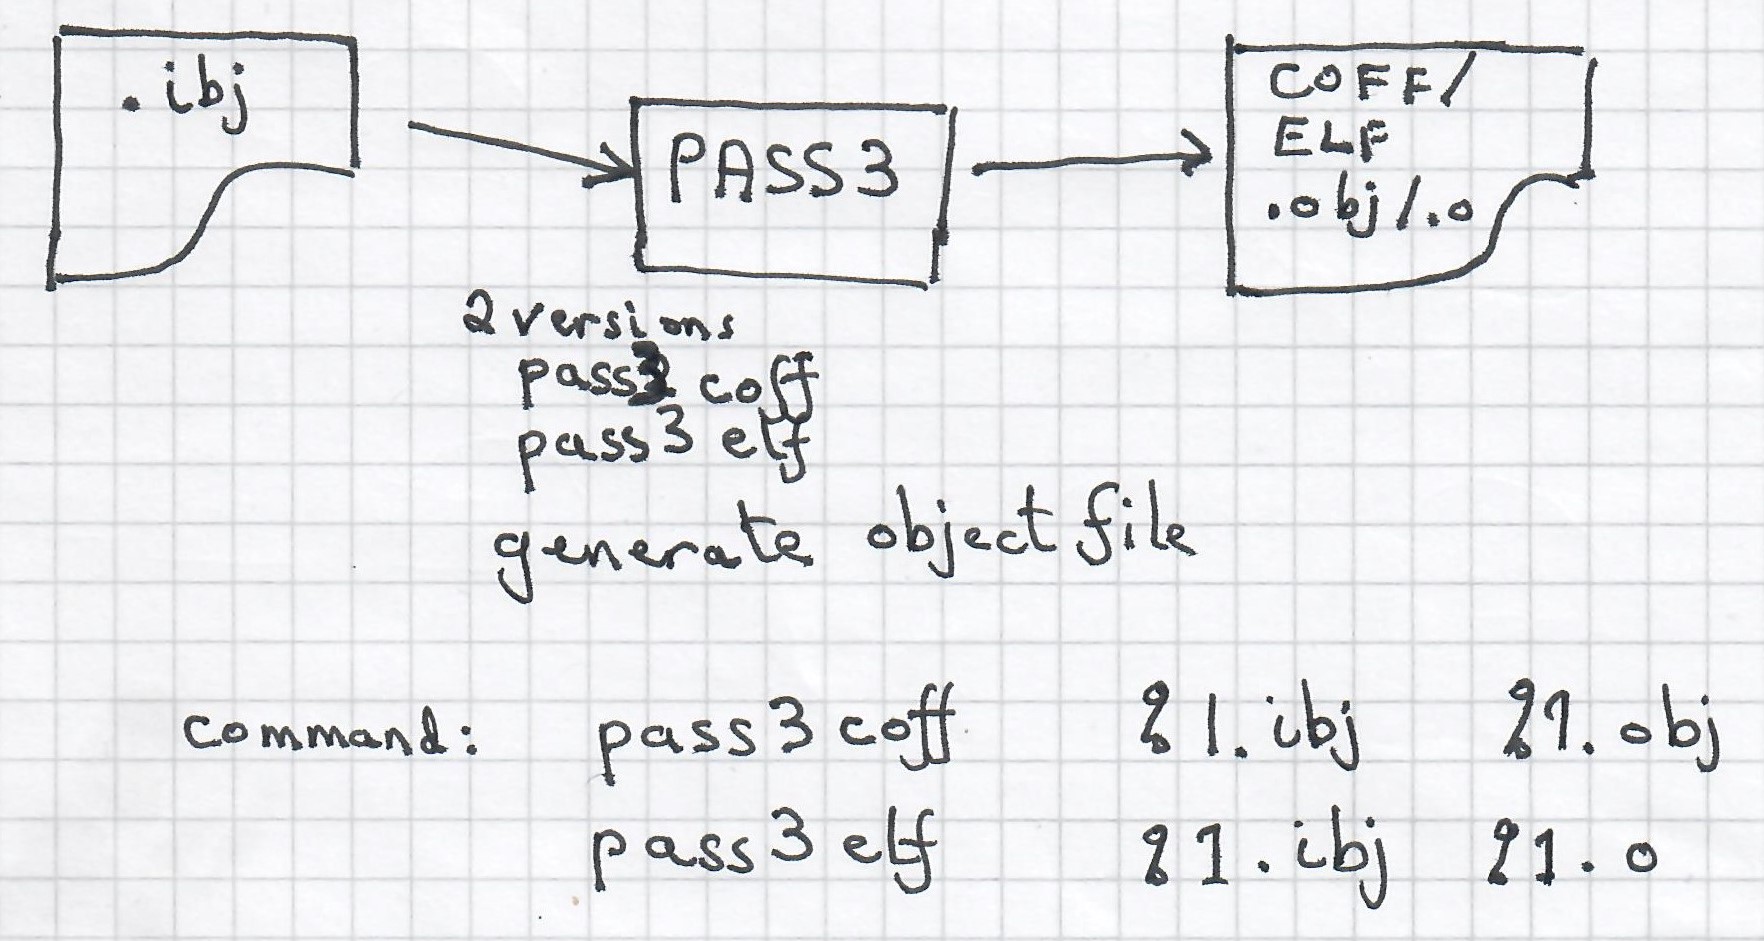 .ibj
PASS3
COFF/
ELF
.obj/.o
2 versions
pass3 coff
pass3 elf
generate object file
command: pass3 coff %1.ibj %1.obj
pass3 elf %1.ibj %1.o